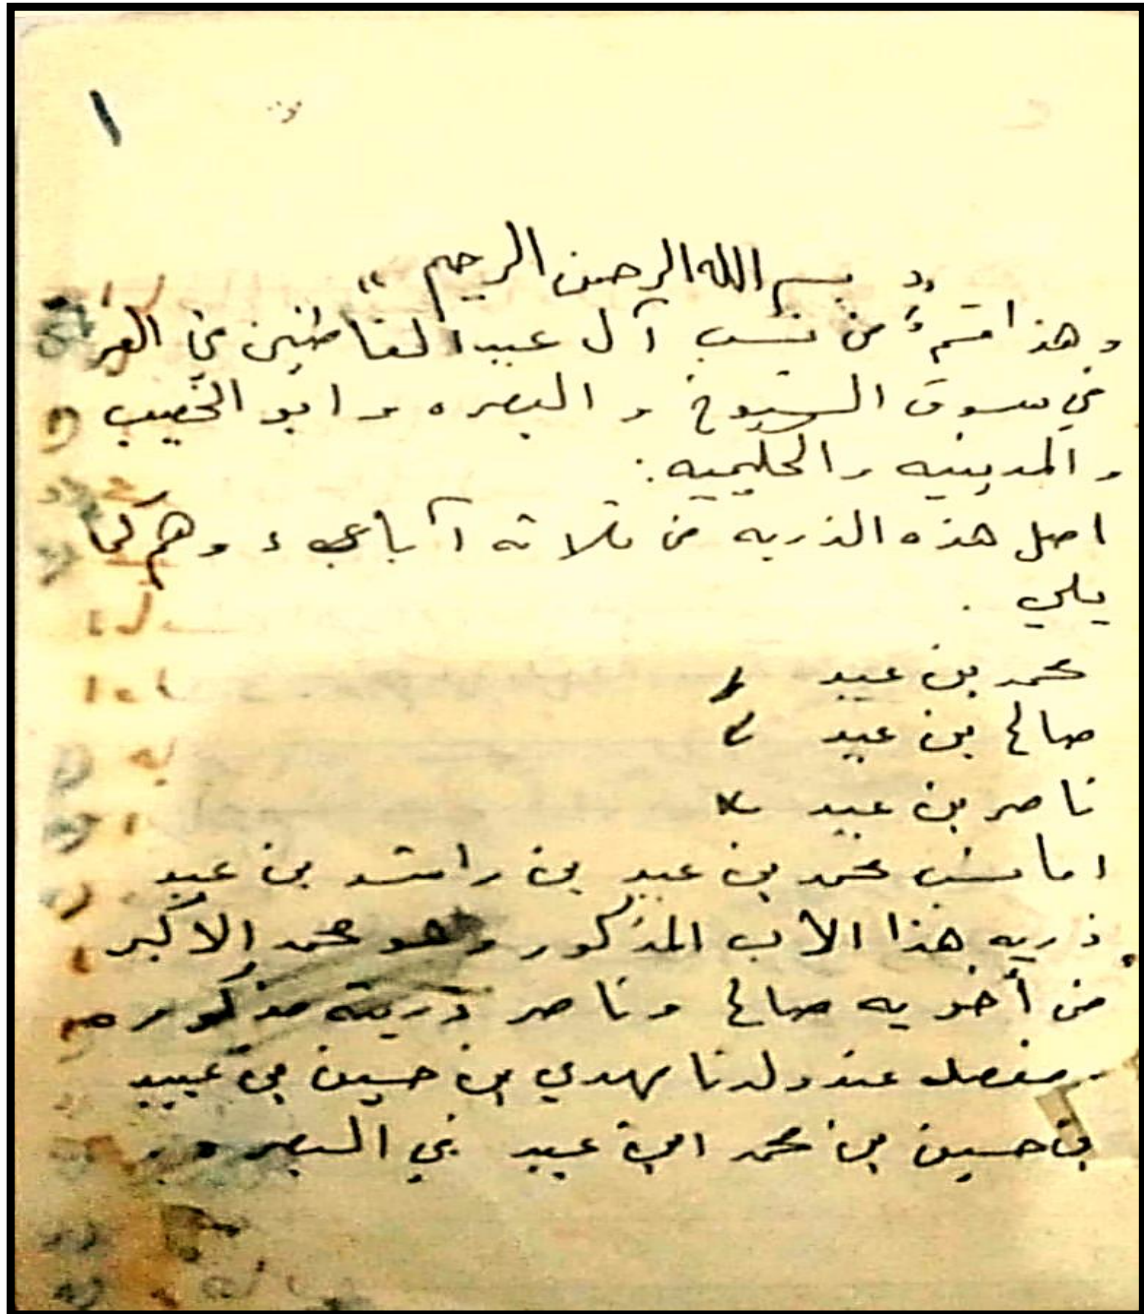 ١
" بسم الله الرحمن الرحيم "
وهذا قسمٌ من نسب آل عبيد القاطنين في العر
في سوق الشيوخ و البصره و ابو الخصيب
و المدينيه والحليميه .
اصل هذه الذريه من ثلاثه آباء وهم كما
يلي .
محمد بن عبيد ١
صالح بن عبيد ٢
ناصر بن عبيد ٣
اما نسب محمد بن عبيد بن راشد بن عبيد
ذريه هذا الأب المذكور وهو محمد الاكبر
من أخويه صالح وناصر ذريته مذكوره
مفصله عند ولدنا مهدي بن حسين بن عبيد
بن حسين بن محمد ابن عبيد في البصره .